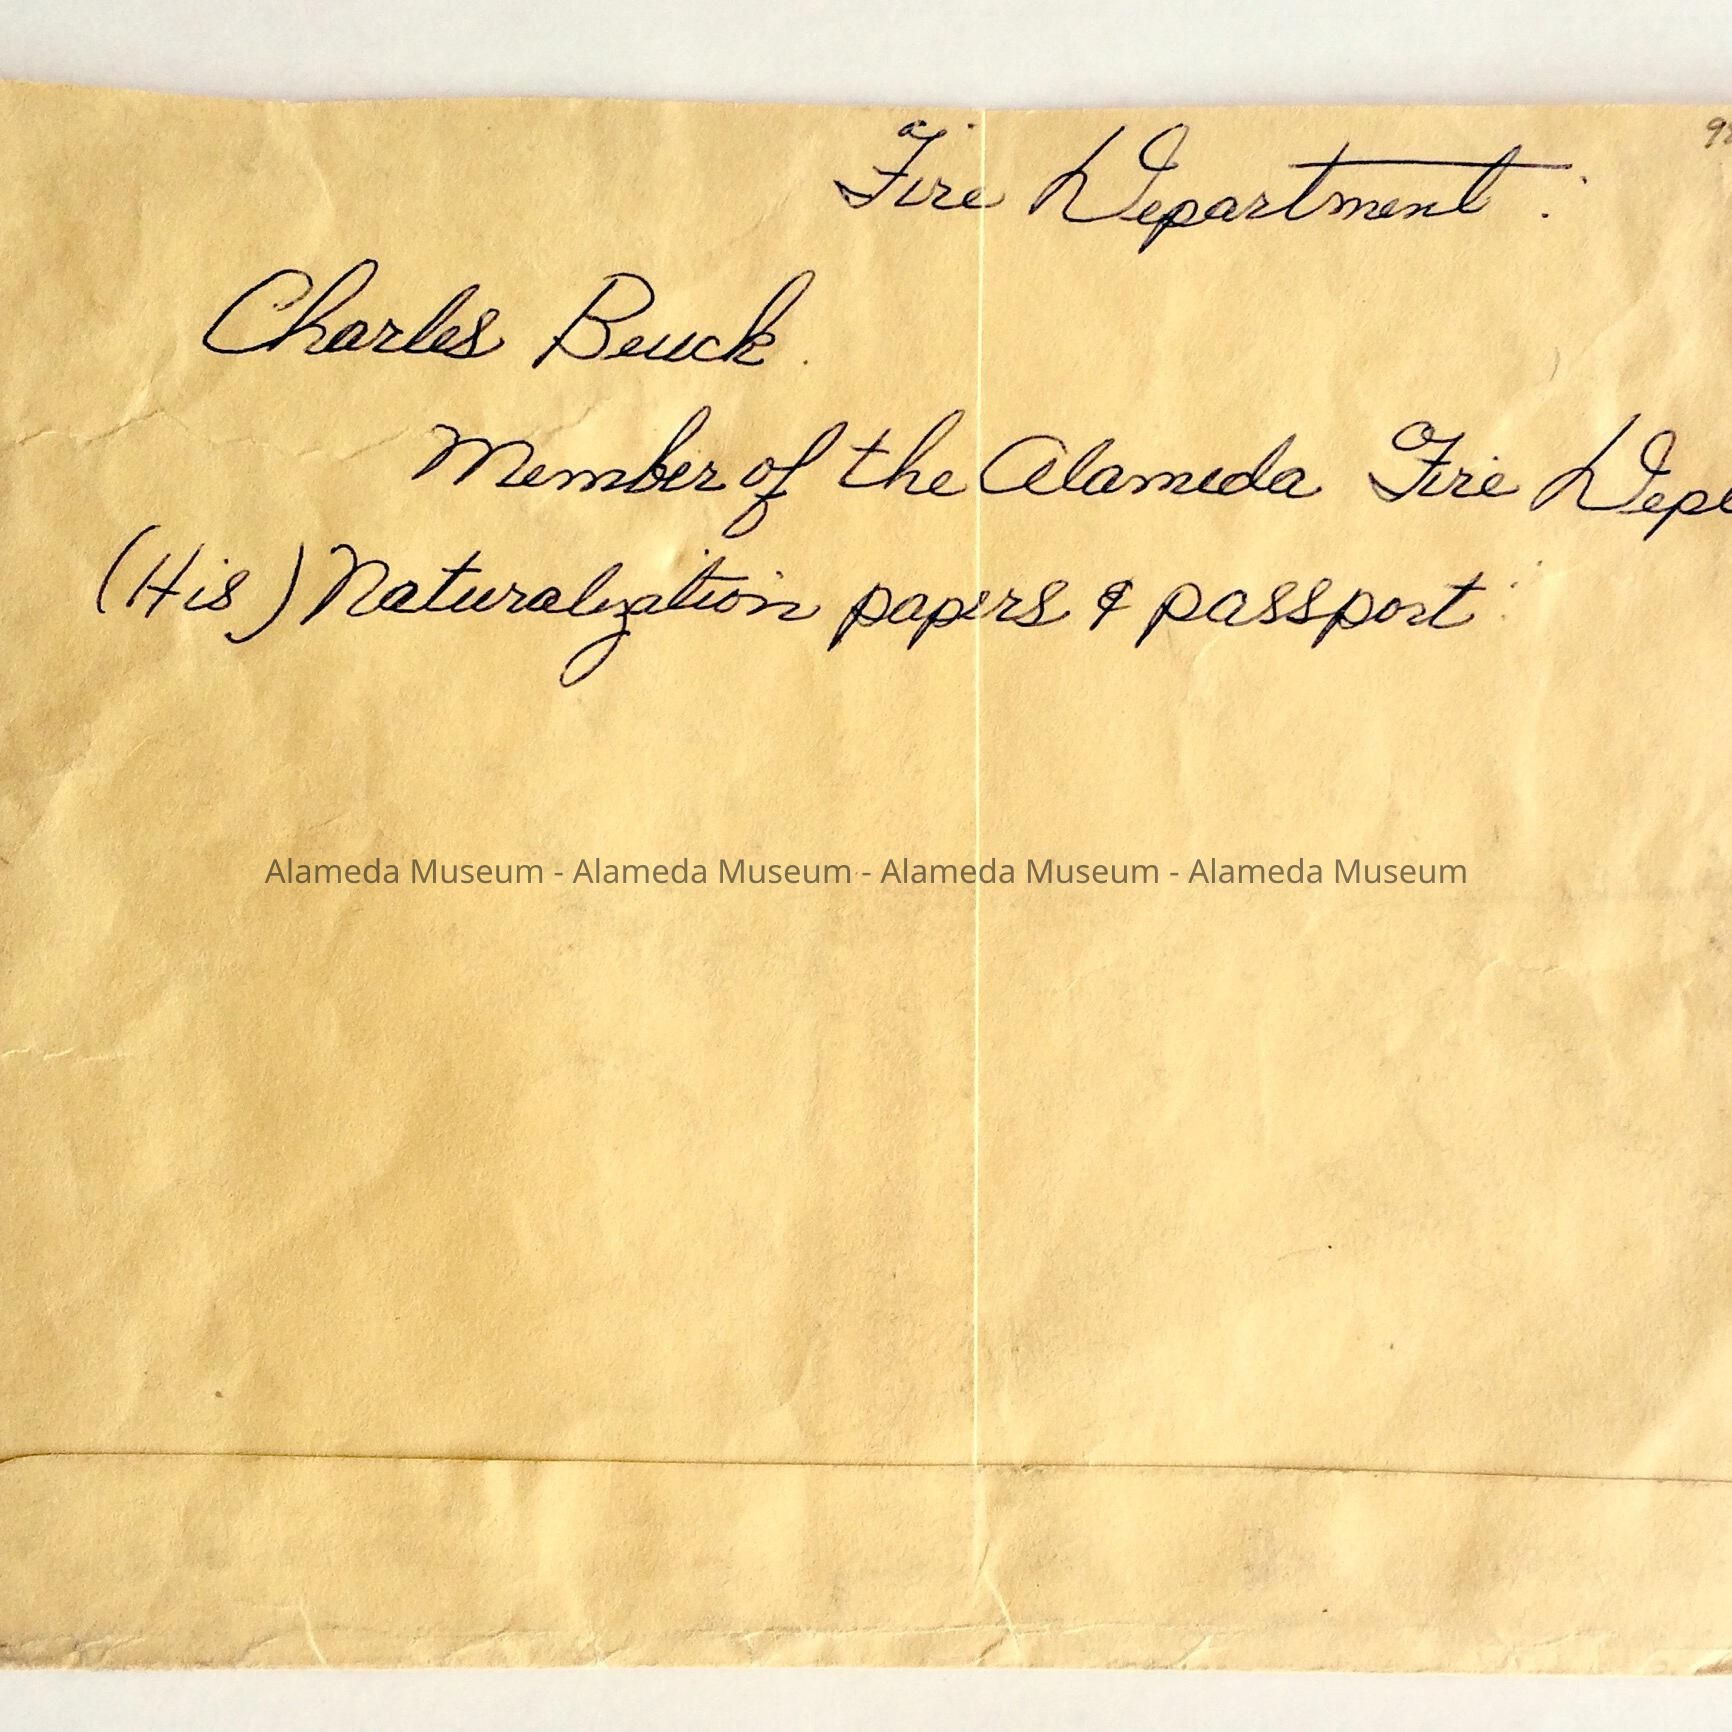 Fire Department.
Charles Beuck.
Member of the Alameda Fire Dept
(His) Naturalization papers & passport
Alameda Museum - Alameda Museum - Alameda Museum - Alameda Museum